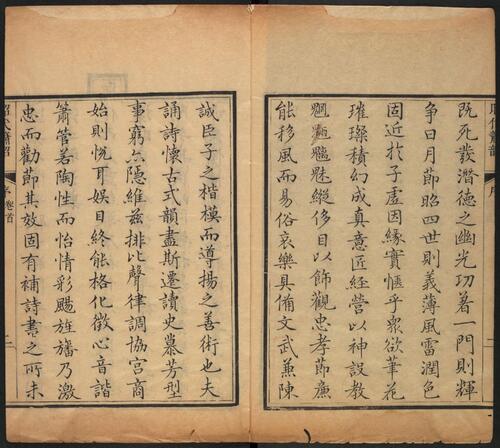 既死發潛德之幽光功著一門則輝
争日月節昭四世則義薄風雷潤色
固近於子虛因緣實愜乎衆欲筆花
璀璨積幻成真意匠經營以神設教
魍魎魑魅縱侈目以飾觀忠孝節廉
能移風而易俗哀樂具備文武兼陳
誠臣子之楷模而導揚之善術也夫
誦詩懷古式韻盡斯遷讀史慕芳型
事窮六隱維兹排比聲律調協宫商
始則悅耳娛目終能格化徵心音諧
簫管若陶性而怡情彩颺旌旛乃激
忠而勸節其效固有補詩書之所未
昭代簫韶
序
卷首
二